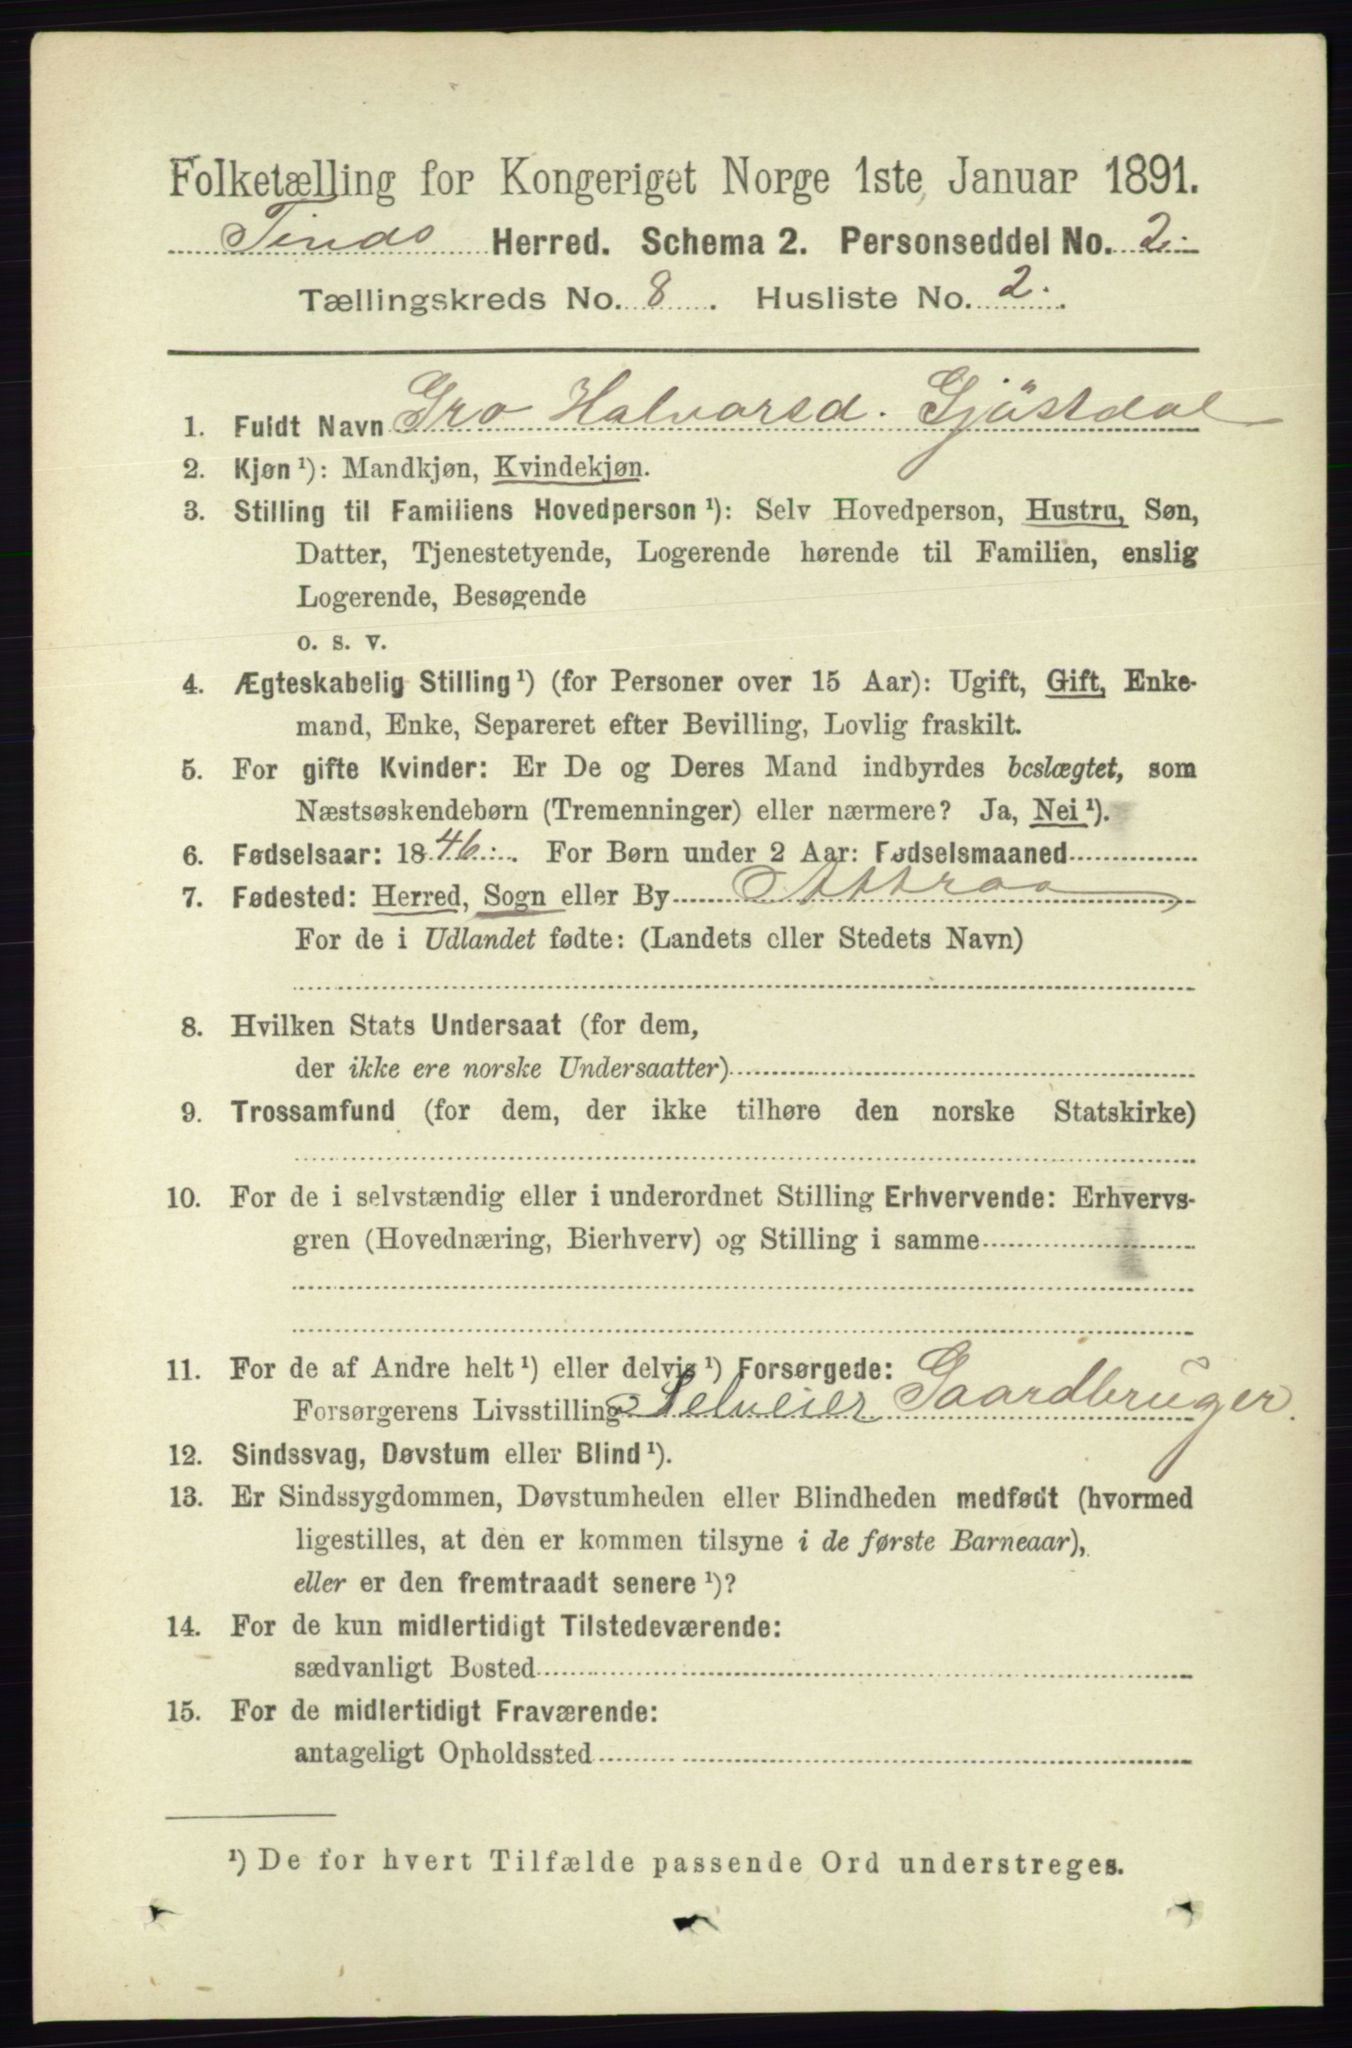 Folketælling for Kongeriget Norge 1ste Januar 1891.
Tinds Herred. Schema 2. Personseddel No. 2.
Tællingskreds No. 8. Husliste No. 2.
1. Fuldt Navn Gro Halvorsd. Gjöstdal
2. Kjøn ¹): Mandkjøn, Kvindekjøn.
3. Stilling til Familiens Hovedperson ¹): Selv Hovedperson, Hustru, Søn,
Datter, Tjenestetyende, Logerende hørende til Familien, enslig
Logerende, Besøgende
o. s. v.
4. Ægteskabelig Stilling ¹) (for Personer over 15 Aar): Ugift, Gift, Enke-
mand, Enke, Separeret efter Bevilling, Lovlig fraskilt.
5. For gifte Kvinder: Er De og Deres Mand indbyrdes beslægtet, som
Næstsøskendebørn (Tremenninger) eller nærmere? Ja, Nei ¹).
6. Fødselsaar: 1846. For Børn under 2 Aar: Fødselsmaaned
7. Fødested: Herred, Sogn eller By Attraa
For de i Udlandet fødte: (Landets eller Stedets Navn)
8. Hvilken Stats Undersaat (for dem,
der ikke ere norske Undersaatter)
9. Trossamfund (for dem, der ikke tilhøre den norske Statskirke)
10. For de i selvstændig eller i underordnet Stilling Erhvervende: Erhvervs-
gren (Hovednæring, Bierhverv) og Stilling i samme
11. For de af Andre helt ¹) eller delvis ¹) Forsørgede:
Forsørgerens Livsstilling Selveier Gaardbruger.
12. Sindssvag, Døvstum eller Blind ¹).
13. Er Sindssygdommen, Døvstumheden eller Blindheden medfødt (hvormed
ligestilles, at den er kommen tilsyne i de første Barneaar),
eller er den fremtraadt senere ¹)?
14. For de kun midlertidigt Tilstedeværende:
sædvanligt Bosted
15. For de midlertidigt Fraværende:
antageligt Opholdssted
¹) De for hvert Tilfælde passende Ord understreges.